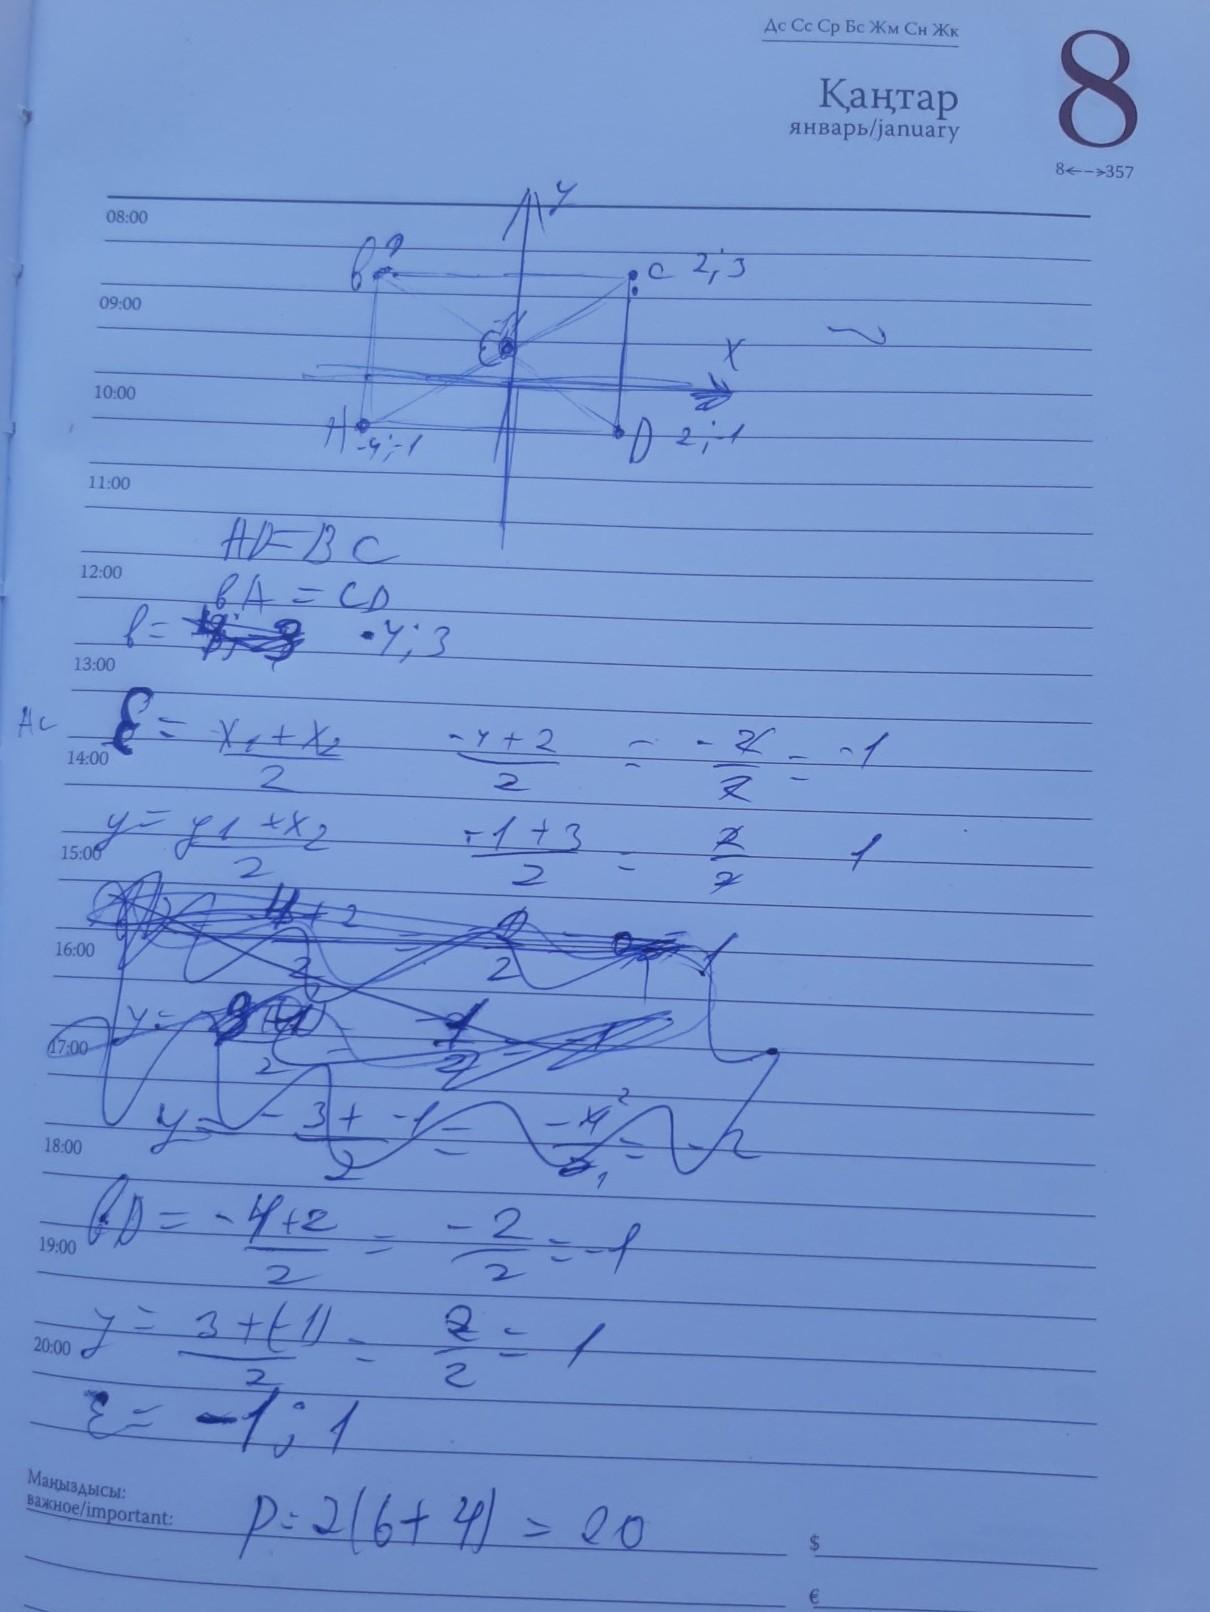 Дс Сс Ср Бс Жм Сн Жк
8
Қаңтар
январь/january
8<-->357
08:00
y
B ?
C 2; 3
09:00
E
X
10:00
A
-4; -1
D 2; -1
11:00
AD = BC
12:00
BA = CD
B = -4; 3
13:00
AC
E = x1 + x2 / 2 -4 + 2 / 2 = - 2 / 2 = -1
14:00
y = y1 + x2 / 2 -1 + 3 / 2 = 2 / 2 1
15:00
16:00
17:00
y = - 3 + -1 / 2 = -4 2 / 2 1 = - 2
18:00
BD = -4+2 / 2 = -2 / 2 = -1
19:00
y = 3 + (-1) / 2 = 2 / 2 = 1
20:00
E = -1; 1
Маңыздысы:
важное/important:
P = 2(6 + 4) = 20
$
€